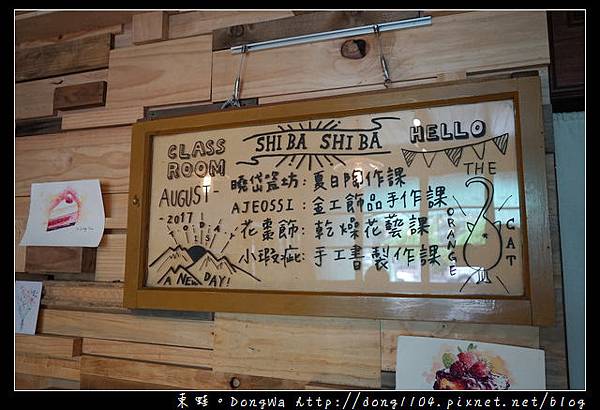 CLASS
ROOM
AUGUST
-2017-
TODAY
IS
A NEW DAY!
SHIBA SHIBA
曉岱窑坊：夏日陶作課
AJEOSSI：金工飾品手作課
花棗飾：乾燥花藝課
小瑕疵：手工書製作課
HELLO
THE
ORANGE
CAT
東蛙。DongWa http://dong1104.pixnet.net/blog